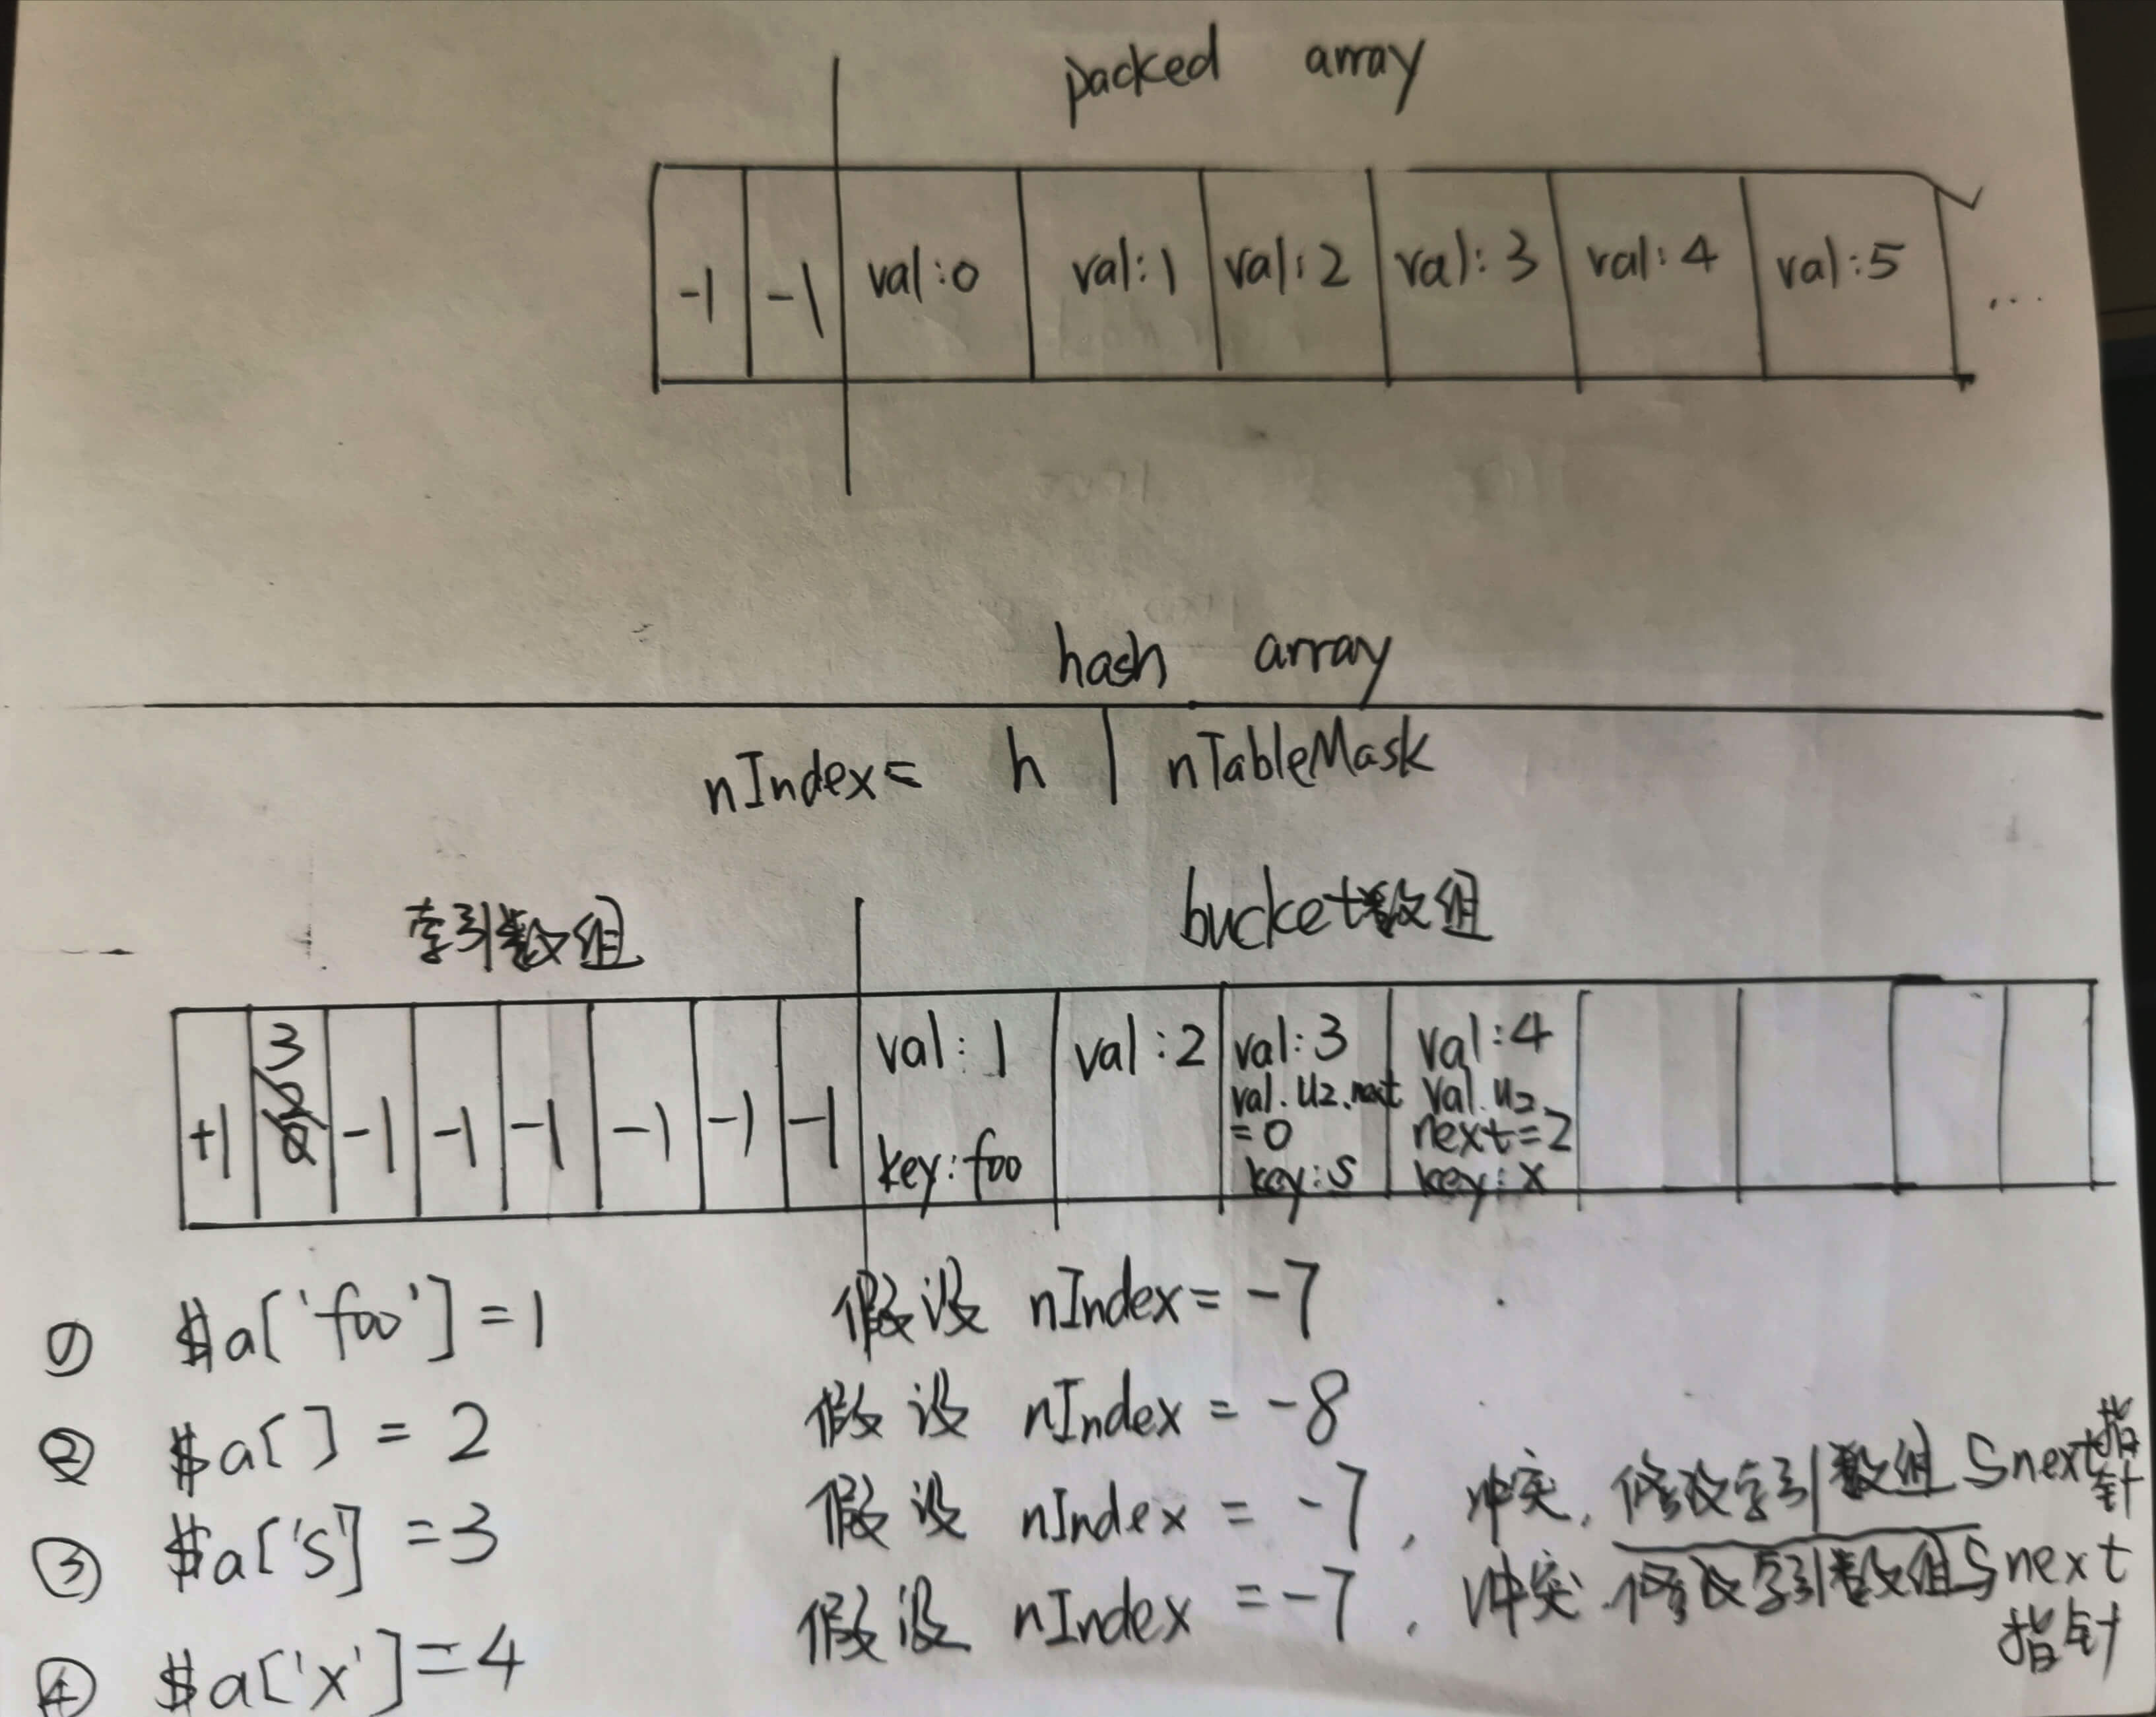 packed array
-1 -1 val:0 val:1 val:2 val:3 val:4 val:5 ...
hash array
nIndex= h | nTableMask
索引数组 bucket数组
+1 3 2 0 -1 -1 -1 -1 -1 -1
val:1
key:foo
val:2
val:3
val.u2.next
=0
key:s
val:4
val.u2.
next=2
key:x
① $a['foo']=1 假设 nIndex= -7
② $a[] = 2 假设 nIndex = -8
③ $a['s'] =3 假设 nIndex = -7, 冲突, 修改索引数组与next指针
④ $a['x']=4 假设 nIndex =-7, 冲突, 修改索引数组与next
指针